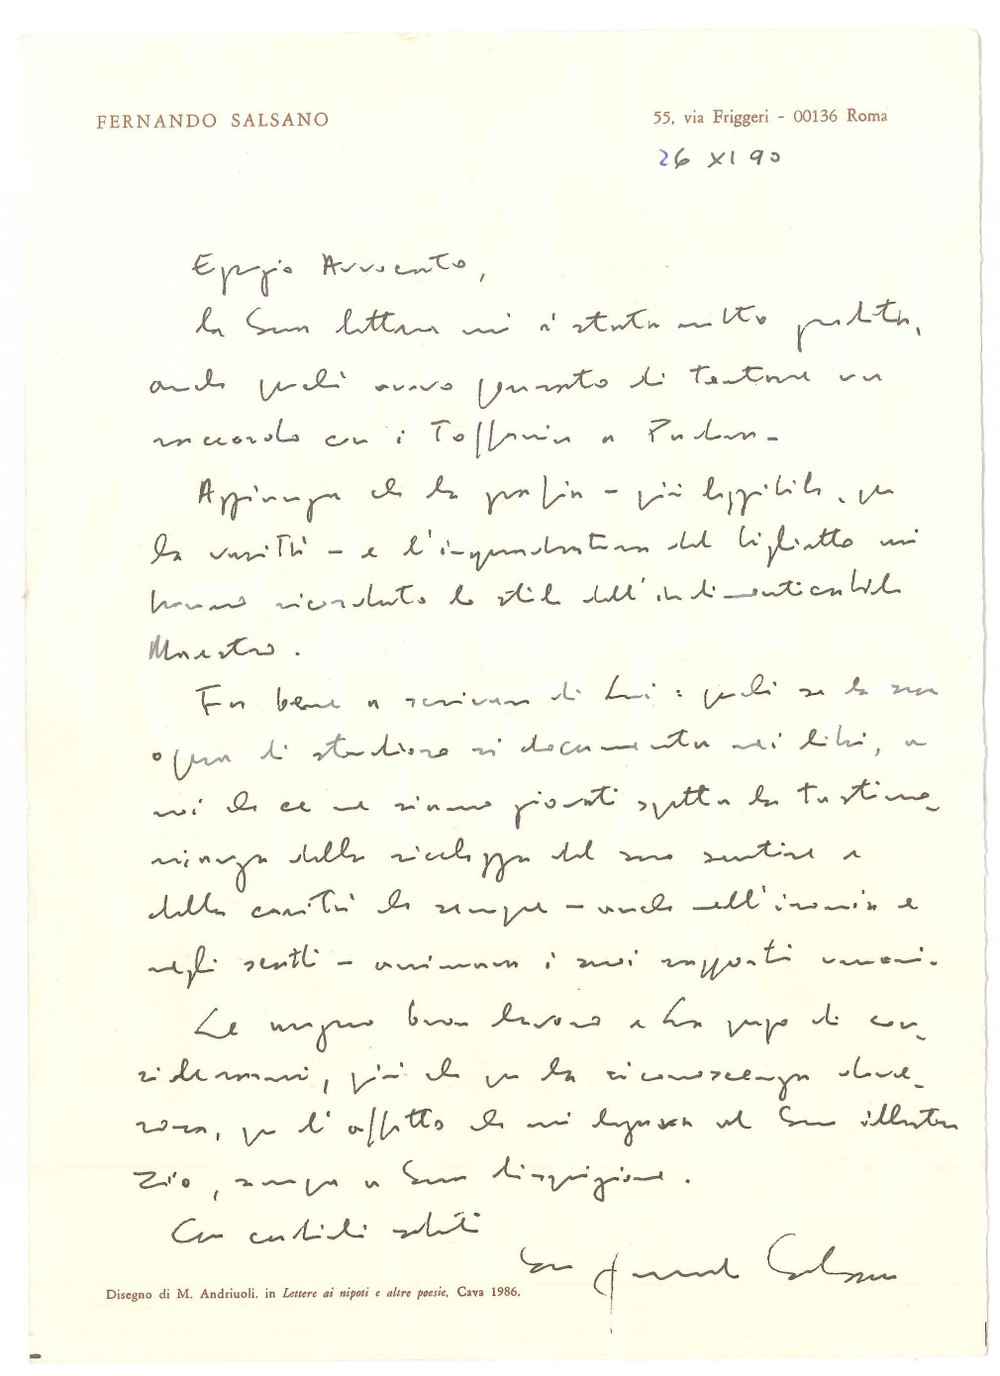 FERNANDO SALSANO
55, via Friggeri - 00136 Roma
26 XI 90
Egregio Avvocato,
la Sua lettera mi è stata molto gradita,
anche perché avevo pensato di tentare un
raccordo con i Toffanin a Padova.
Aggiunga che la grafia - più leggibile, per
la verità - e l'inquadratura del biglietto mi
hanno ricordato lo stile dell'indimenticabile
Maestro.
Fa bene a scrivere di Lui: perché se la sua
opera di studioso si documenta nei libri, a
noi che ce ne siamo giovati spetta la testimo-
nianza della ricchezza del suo sentire e
della carità che sempre - anche nell'ironia e
negli scatti - animava i suoi rapporti umani.
Le auguro buon lavoro e La prego di con-
siderarmi, più che per la riconoscenza dove-
rosa, per l'affetto che mi legava al Suo illustre
Zio, sempre a Sua disposizione.
Con cordiali saluti
Suo Fernando Salsano
Disegno di M. Andriuoli. in Lettere ai nipoti e altre poesie, Cava 1986.